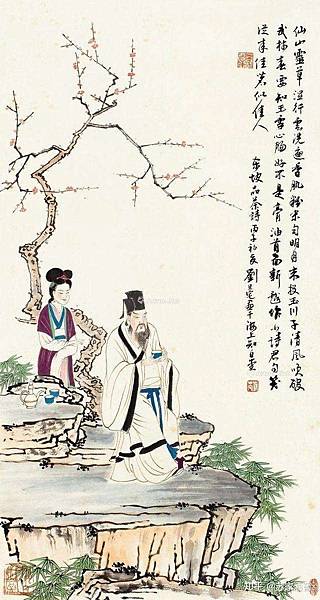 仙山靈草湿行雲洗遍香肌粉未匀明月来投玉川子清風吹破
武林春要知玉雪心腸好不是膏油首面新戲作小詩君勿笑
從来佳茗似佳人
東坡品茶詩丙子初夏劉
知乎